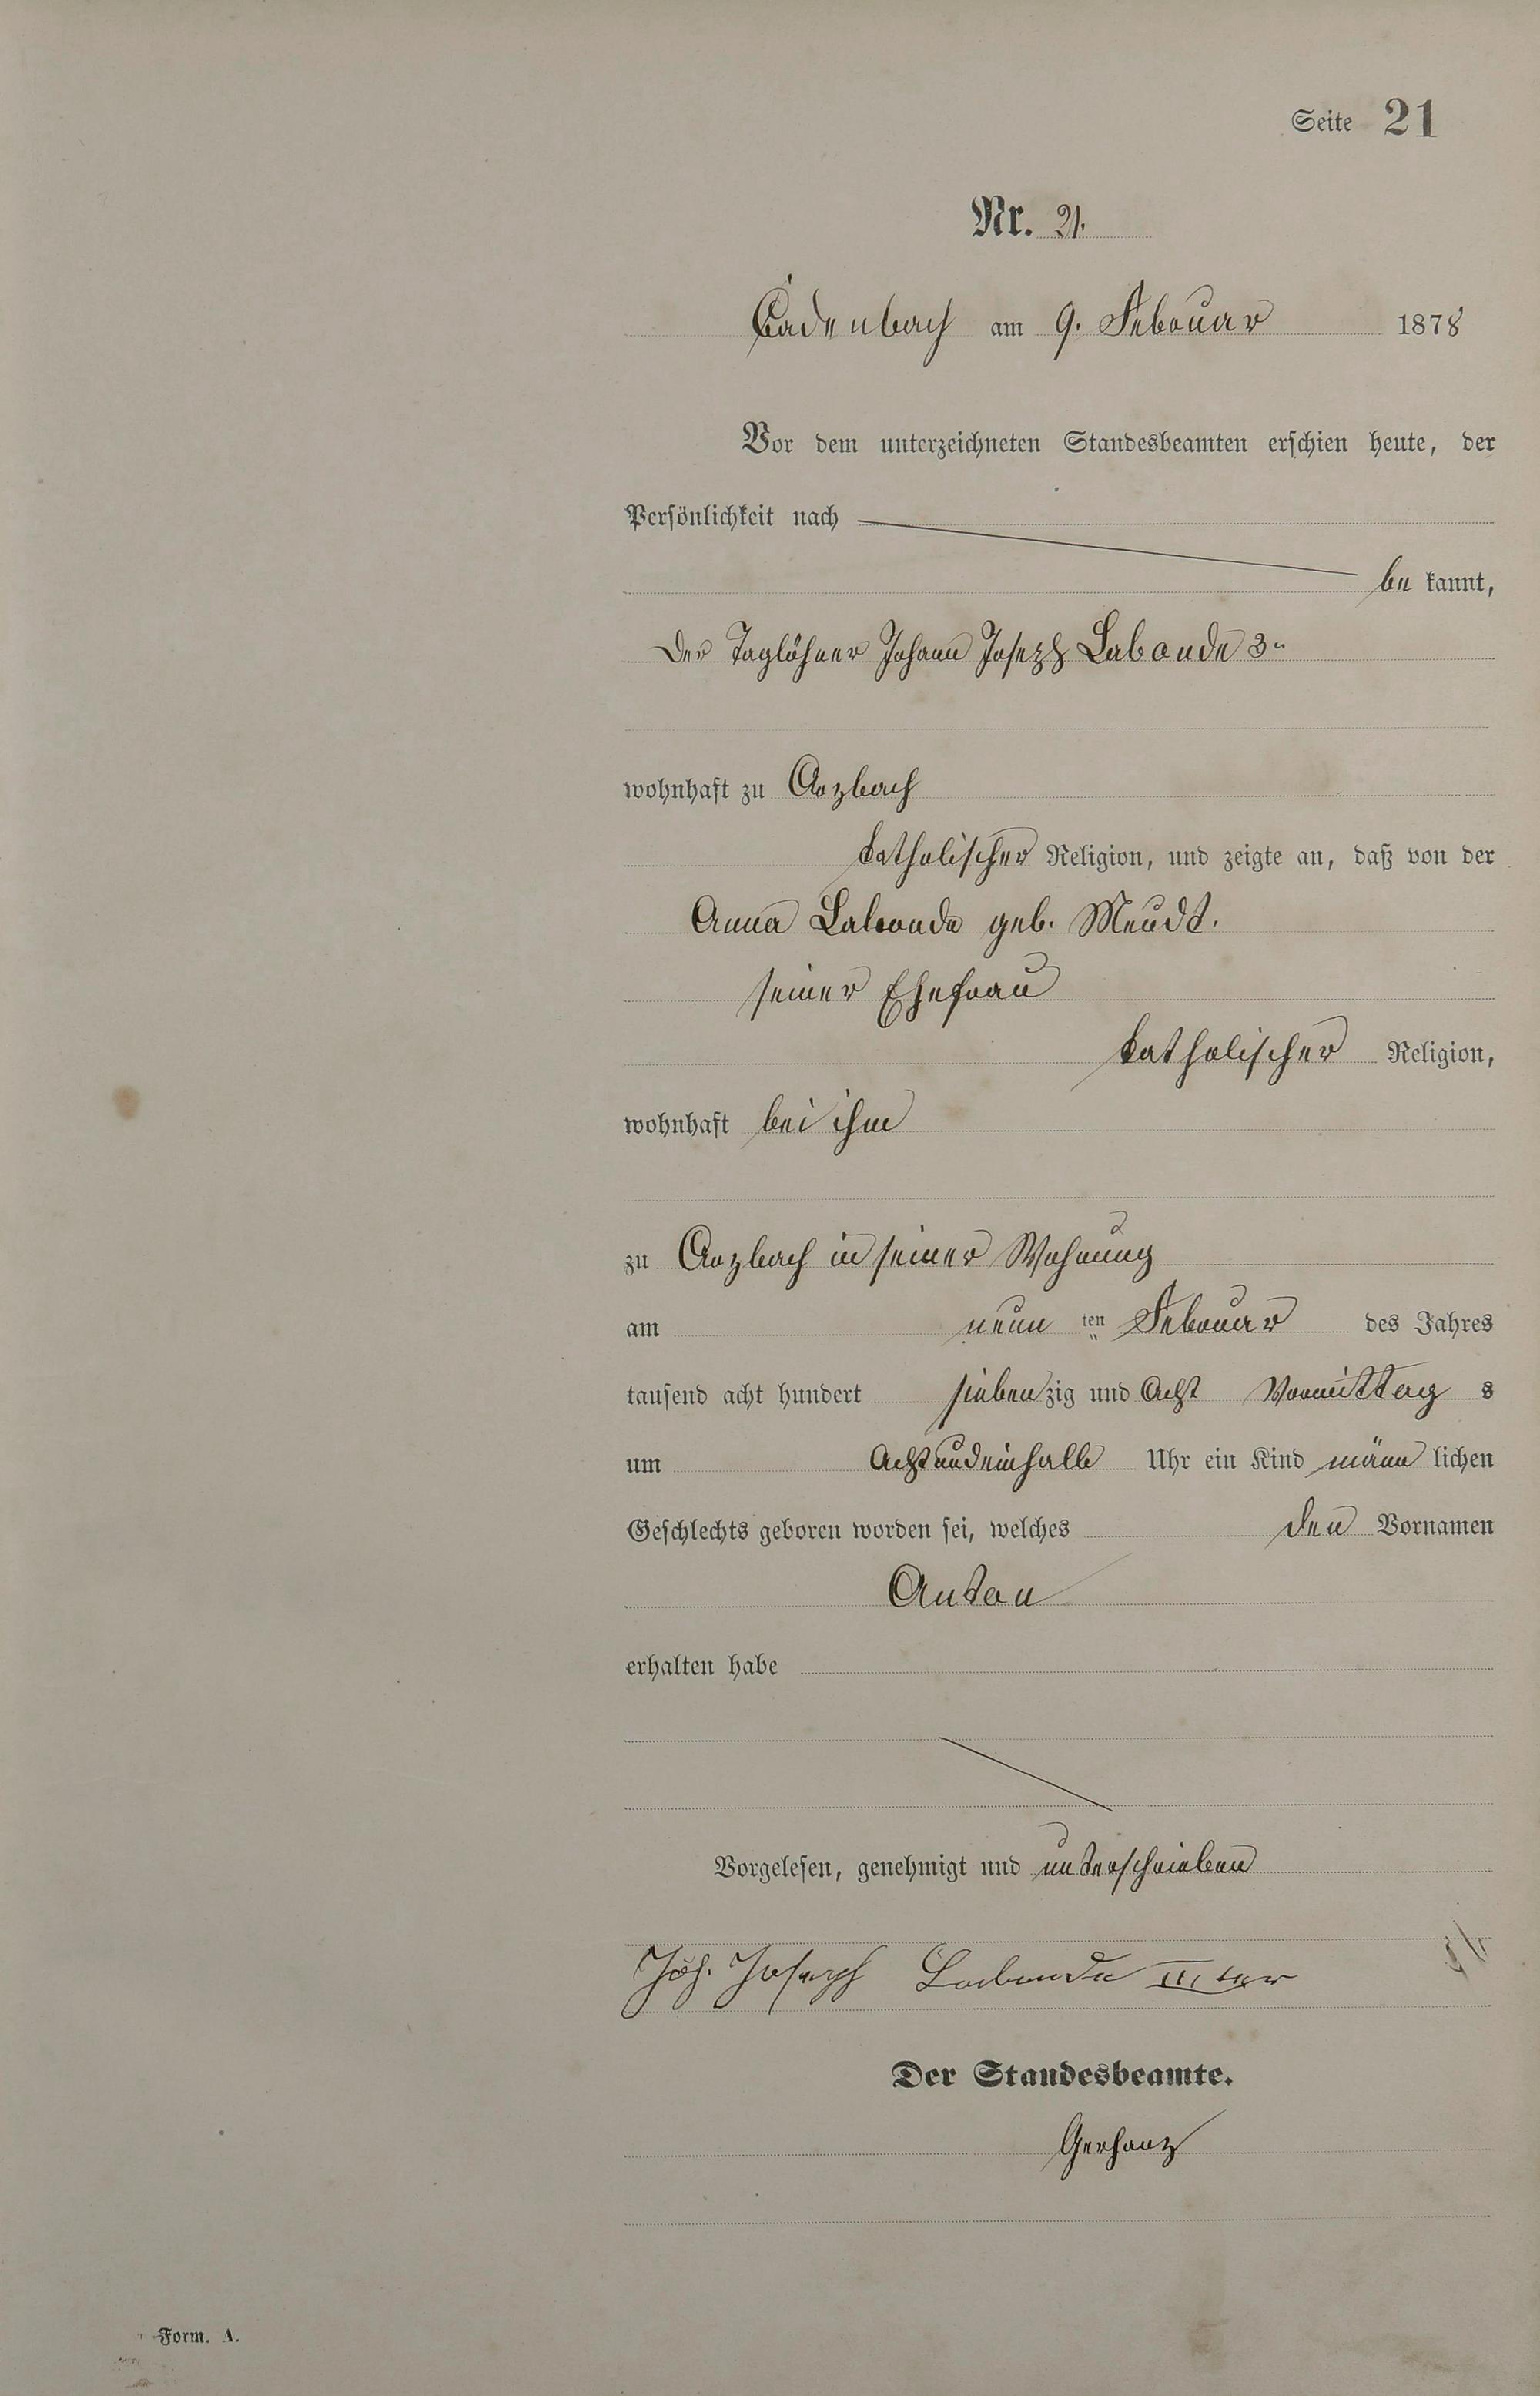 Seite 21
Nr. 21.
Cadenbach am 9. Februar 1878
Vor dem unterzeichneten Standesbeamten erschien heute, der
Persönlichkeit nach
be kannt,
der Taglöhner Johann Joseph Labonde 3r
wohnhaft zu Arzbach
katholischer Religion, und zeigte an, daß von der
Anna Labonde geb. Meudt.
seiner Ehefrau
katholischer Religion,
wohnhaft bei ihm
zu Arzbach in seiner Wohnung
am neun ten Februar des Jahres
tausend acht hundert siebenzig und Acht Vormittag s
um Acht und einhalb Uhr ein Kind männ lichen
Geschlechts geboren worden sei, welches den Vornamen
Anton
erhalten habe
Vorgelesen, genehmigt und unterschrieben
Joh. Joseph Labonde III ter
Der Standesbeamte.
Gerhanz
Form. A.